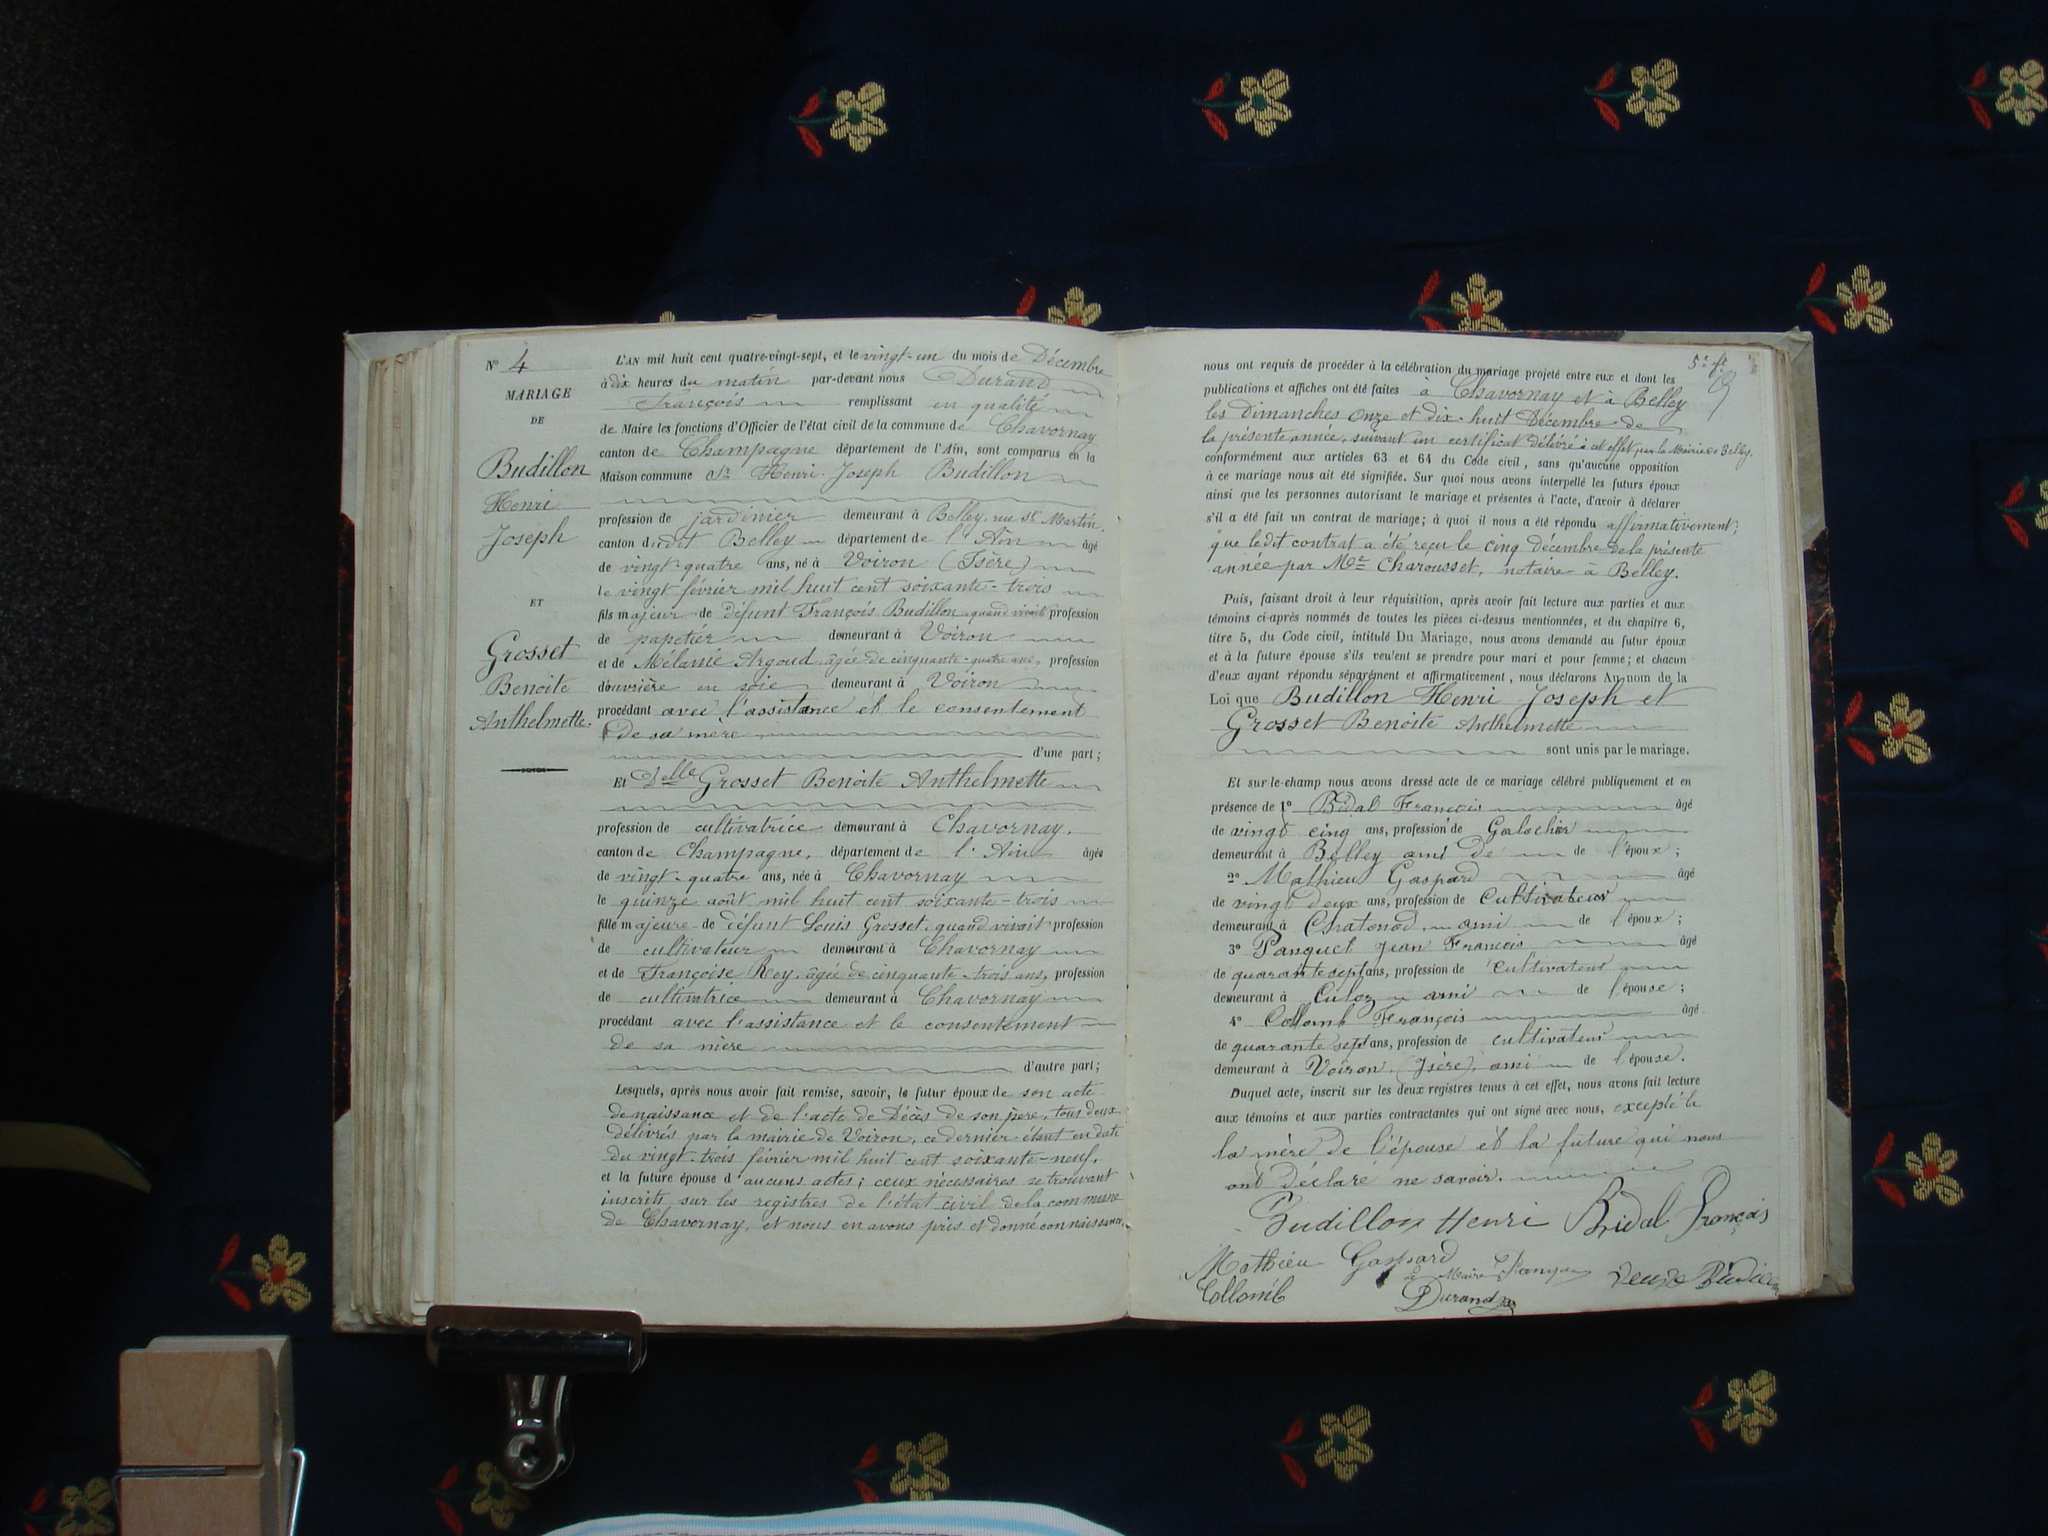 N° 4
MARIAGE
DE
Budillon
Henri
Joseph
ET
Grosset
Benoite
Anthelmette.
L'AN mil huit cent quatre-vingt-sept, et le vingt-un du mois de Décembre
à dix heures du matin par-devant nous Durand
François remplissant en qualité
de Maire les fonctions d'Officier de l'état civil de la commune de Chavornay
canton de Champagne département de l'Ain, sont comparus en la
Maison commune Sr Henri Joseph Budillon
profession de jardinier demeurant à Belley, rue St Martin,
canton dudit Belley département de l'Ain âgé
de vingt-quatre ans, né à Voiron (Isère)
le vingt février mil huit cent soixante-trois
fils majeur de défunt François Budillon quand vivait profession
de papetier demeurant à Voiron
et de Mélanie Argoud, âgée de cinquante-quatre ans, profession
d'ouvrière en soie demeurant à Voiron
procédant avec l'assistance et le consentement
de sa mère
d'une part;
Et Delle Grosset Benoite Anthelmette
profession de cultivatrice demeurant à Chavornay,
canton de Champagne, département de l'Ain âgée
de vingt-quatre ans, née à Chavornay
le quinze août mil huit cent soixante-trois
fille majeure de défunt Louis Grosset, quand vivait profession
de cultivateur demeurant à Chavornay
et de Françoise Rey, âgée de cinquante-trois ans, profession
de cultivatrice demeurant à Chavornay
procédant avec l'assistance et le consentement
de sa mère
d'autre part;
Lesquels, après nous avoir fait remise, savoir, le futur époux de son acte
de naissance et de l'acte de Décès de son père, tous deux
délivrés par la mairie de Voiron, ce dernier étant en date
du vingt-trois février mil huit cent soixante-neuf,
et la future épouse d'aucuns actes; ceux nécessaires se trouvant
inscrits sur les registres de l'état civil de la commune
de Chavornay, et nous en avons pris et donné connaissance,
5e f.
nous ont requis de procéder à la célébration du mariage projeté entre eux et dont les
publications et affiches ont été faites à Chavornay et à Belley
les Dimanches onze et dix-huit Décembre de
la présente année, suivant un certificat délivré à cet effet par la Mairie de Belley.
conformément aux articles 63 et 64 du Code civil, sans qu'aucune opposition
à ce mariage nous ait été signifiée. Sur quoi nous avons interpellé les futurs époux
ainsi que les personnes autorisant le mariage et présentes à l'acte, d'avoir à déclarer
s'il a été fait un contrat de mariage; à quoi il nous a été répondu affirmativement;
que ledit contrat a été reçu le cinq décembre de la présente
année par Me Charousset, notaire à Belley.
Puis, faisant droit à leur réquisition, après avoir fait lecture aux parties et aux
témoins ci-après nommés de toutes les pièces ci-dessus mentionnées, et du chapitre 6,
titre 5, du Code civil, intitulé Du Mariage, nous avons demandé au futur époux
et à la future épouse s'ils veulent se prendre pour mari et pour femme; et chacun
d'eux ayant répondu séparément et affirmativement, nous déclarons Au nom de la
Loi que Budillon Henri Joseph et
Grosset Benoite Anthelmette
sont unis par le mariage.
Et sur-le-champ nous avons dressé acte de ce mariage célébré publiquement et en
présence de 1° Bidal François âgé
de vingt cinq ans, profession de Galochier
demeurant à Belley ami de de l'époux;
2° Mathieu Gaspard âgé
de vingt deux ans, profession de Cultivateur
demeurant à Chatonod, ami de l'époux;
3° Panguet Jean François âgé
de quarante sept ans, profession de cultivateur
demeurant à Culoz ami de l'épouse;
4° Collomb François âgé
de quarante sept ans, profession de cultivateur
demeurant à Voiron (Isère), ami de l'épouse.
Duquel acte, inscrit sur les deux registres tenus à cet effet, nous avons fait lecture
aux témoins et aux parties contractantes qui ont signé avec nous, excepté la
la mère de l'épouse et la future qui nous
ont déclaré ne savoir.
Budillon Henri Bidal François
Mathieu Gaspard
Le Maire
Collomb Durand